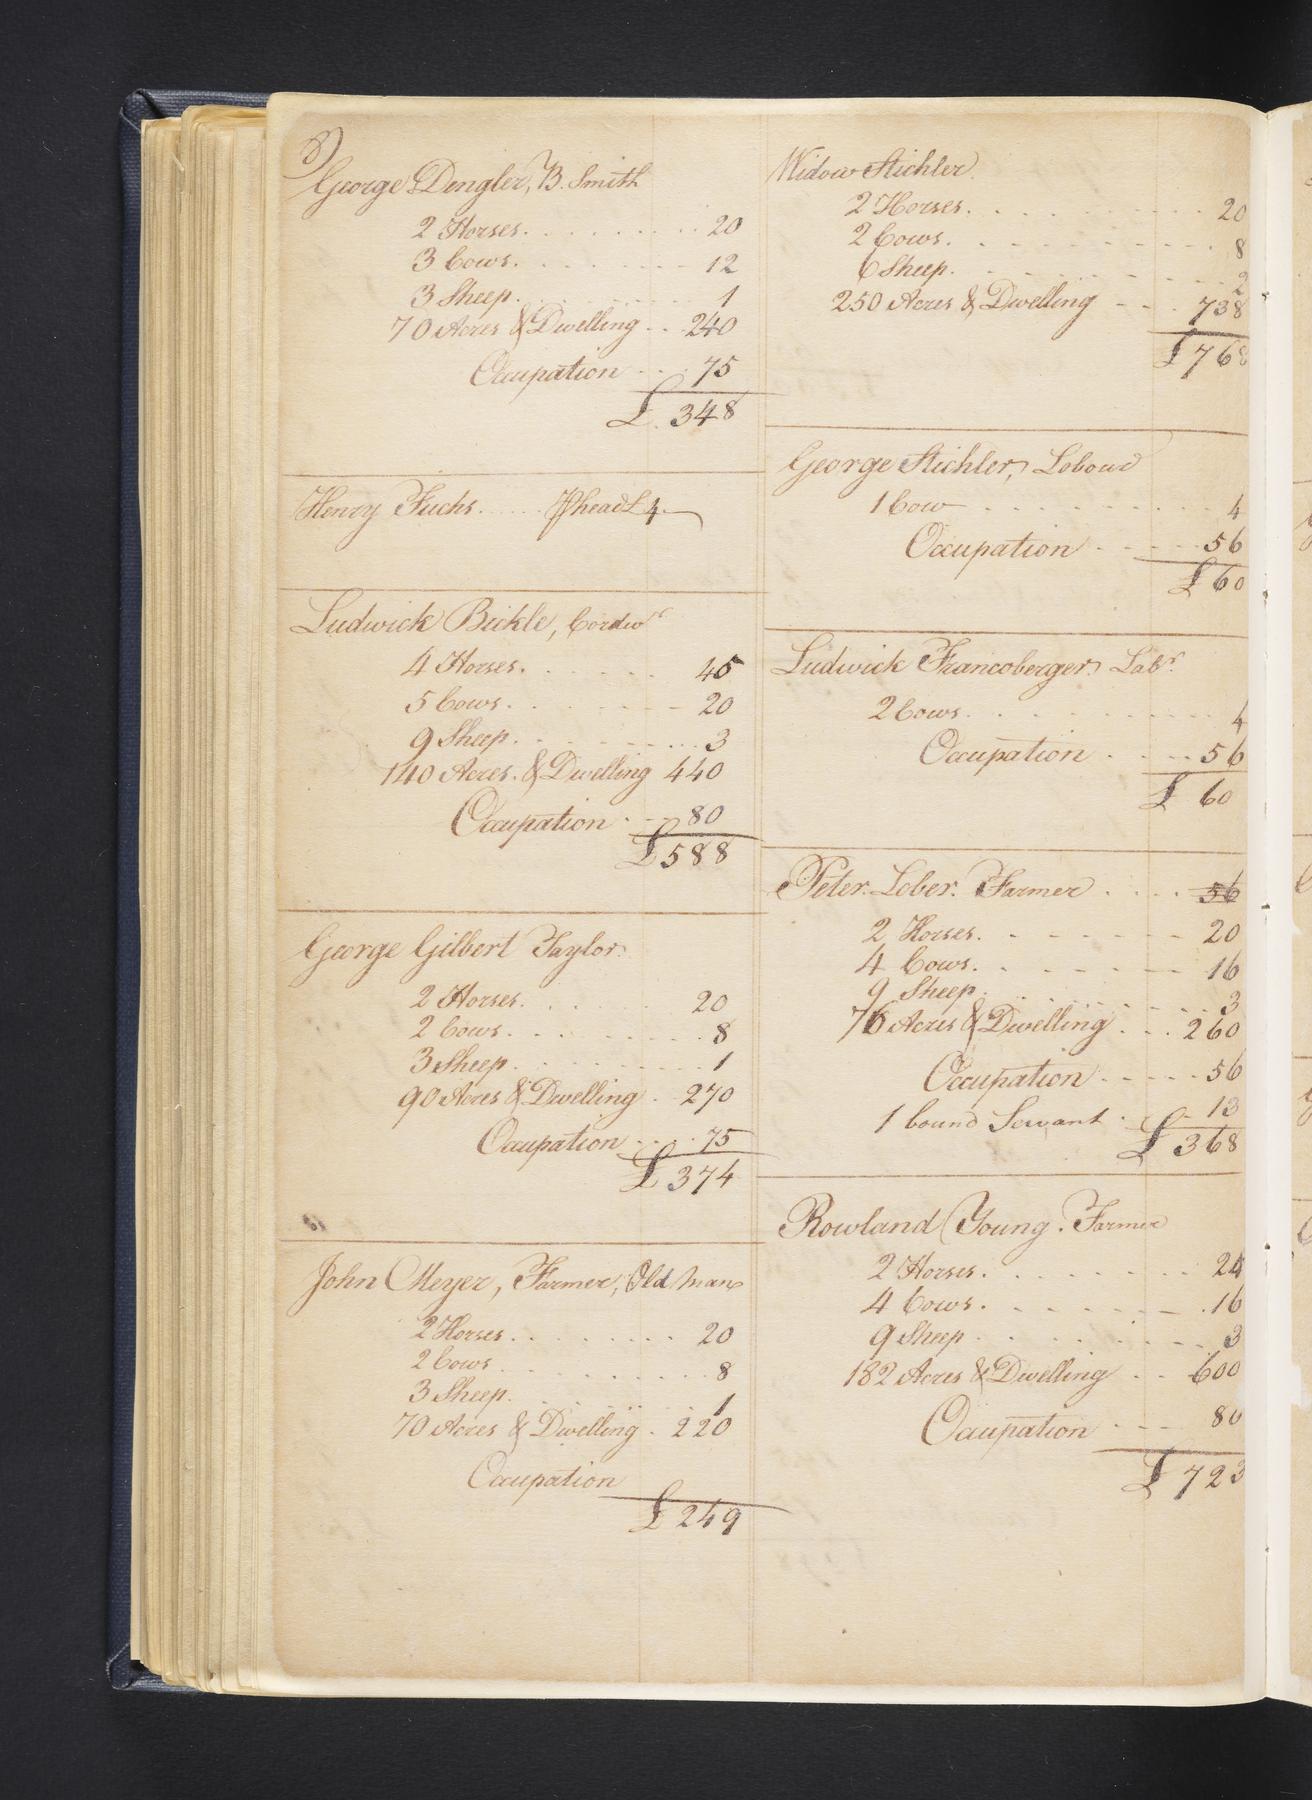 8)
George Dengler, B. Smith
2 Horses. . . . . . . . . 20
3 Cows. . . . . . . . 12
3 Sheep. . . . . . . . 1
70 Acres & Dwelling . . 240
Occupation . . . 75
£. 348
Henry Fuchs. . . . . . P head £ 4
Ludwick Bickle, Cordwr
4 Horses. . . . . . . 45
5 Cows. . . . . . . . 20
9 Sheep. . . . . . . . 3
140 Acres. & Dwelling 440
Occupation . - 80
£ 588
George Gilbert Taylor
2 Horses. . . . . . 20
2 Cows. . . . . . . . 8
3 Sheep. . . . . . . . 1
90 Acres & Dwelling . 270
Occupation . . . 75
£ 374
John Meyer, Farmer, Old man
2 Horses. . . . . . . . 20
2 Cows . . . . . . . . 8
3 Sheep. . . . . . . . 1
70 Acres & Dwelling . 220
Occupation
£ 249
Widow Stichler.
2 Horses. . . . . . . . . 20
2 Cows. . . . . . . . . . 8
6 Sheep. . . . . . . . . 2
250 Acres & Dwelling - - . 738
£ 768
George Stichler, Labour
1 Cow . . . . . . . . . . 4
Occupation - - - - - 56
£ 60
Ludwick Francoberger Labr.
2 Cows. . . . . . . . . . 4
Occupation . . . . . 56
£ 60
Peter. Lober. Farmer . . . . 56
2 Horses. . . . . . . 20
4 Cows. . . . . . . . 16
9 Sheep. . . . . . . . 3
76 Acres & Dwelling . . . 260
Occupation - - - - - 56
1 bound Servant . - 13
£ 368
Rowland Young. Farmer
2 Horses. . . . . . . . 24
4 Cows. . . . . . . . .16
9 Sheep . . . . . . . . 3
182 Acres & Dwelling . . 600
Occupation . - - - 80
£ 723